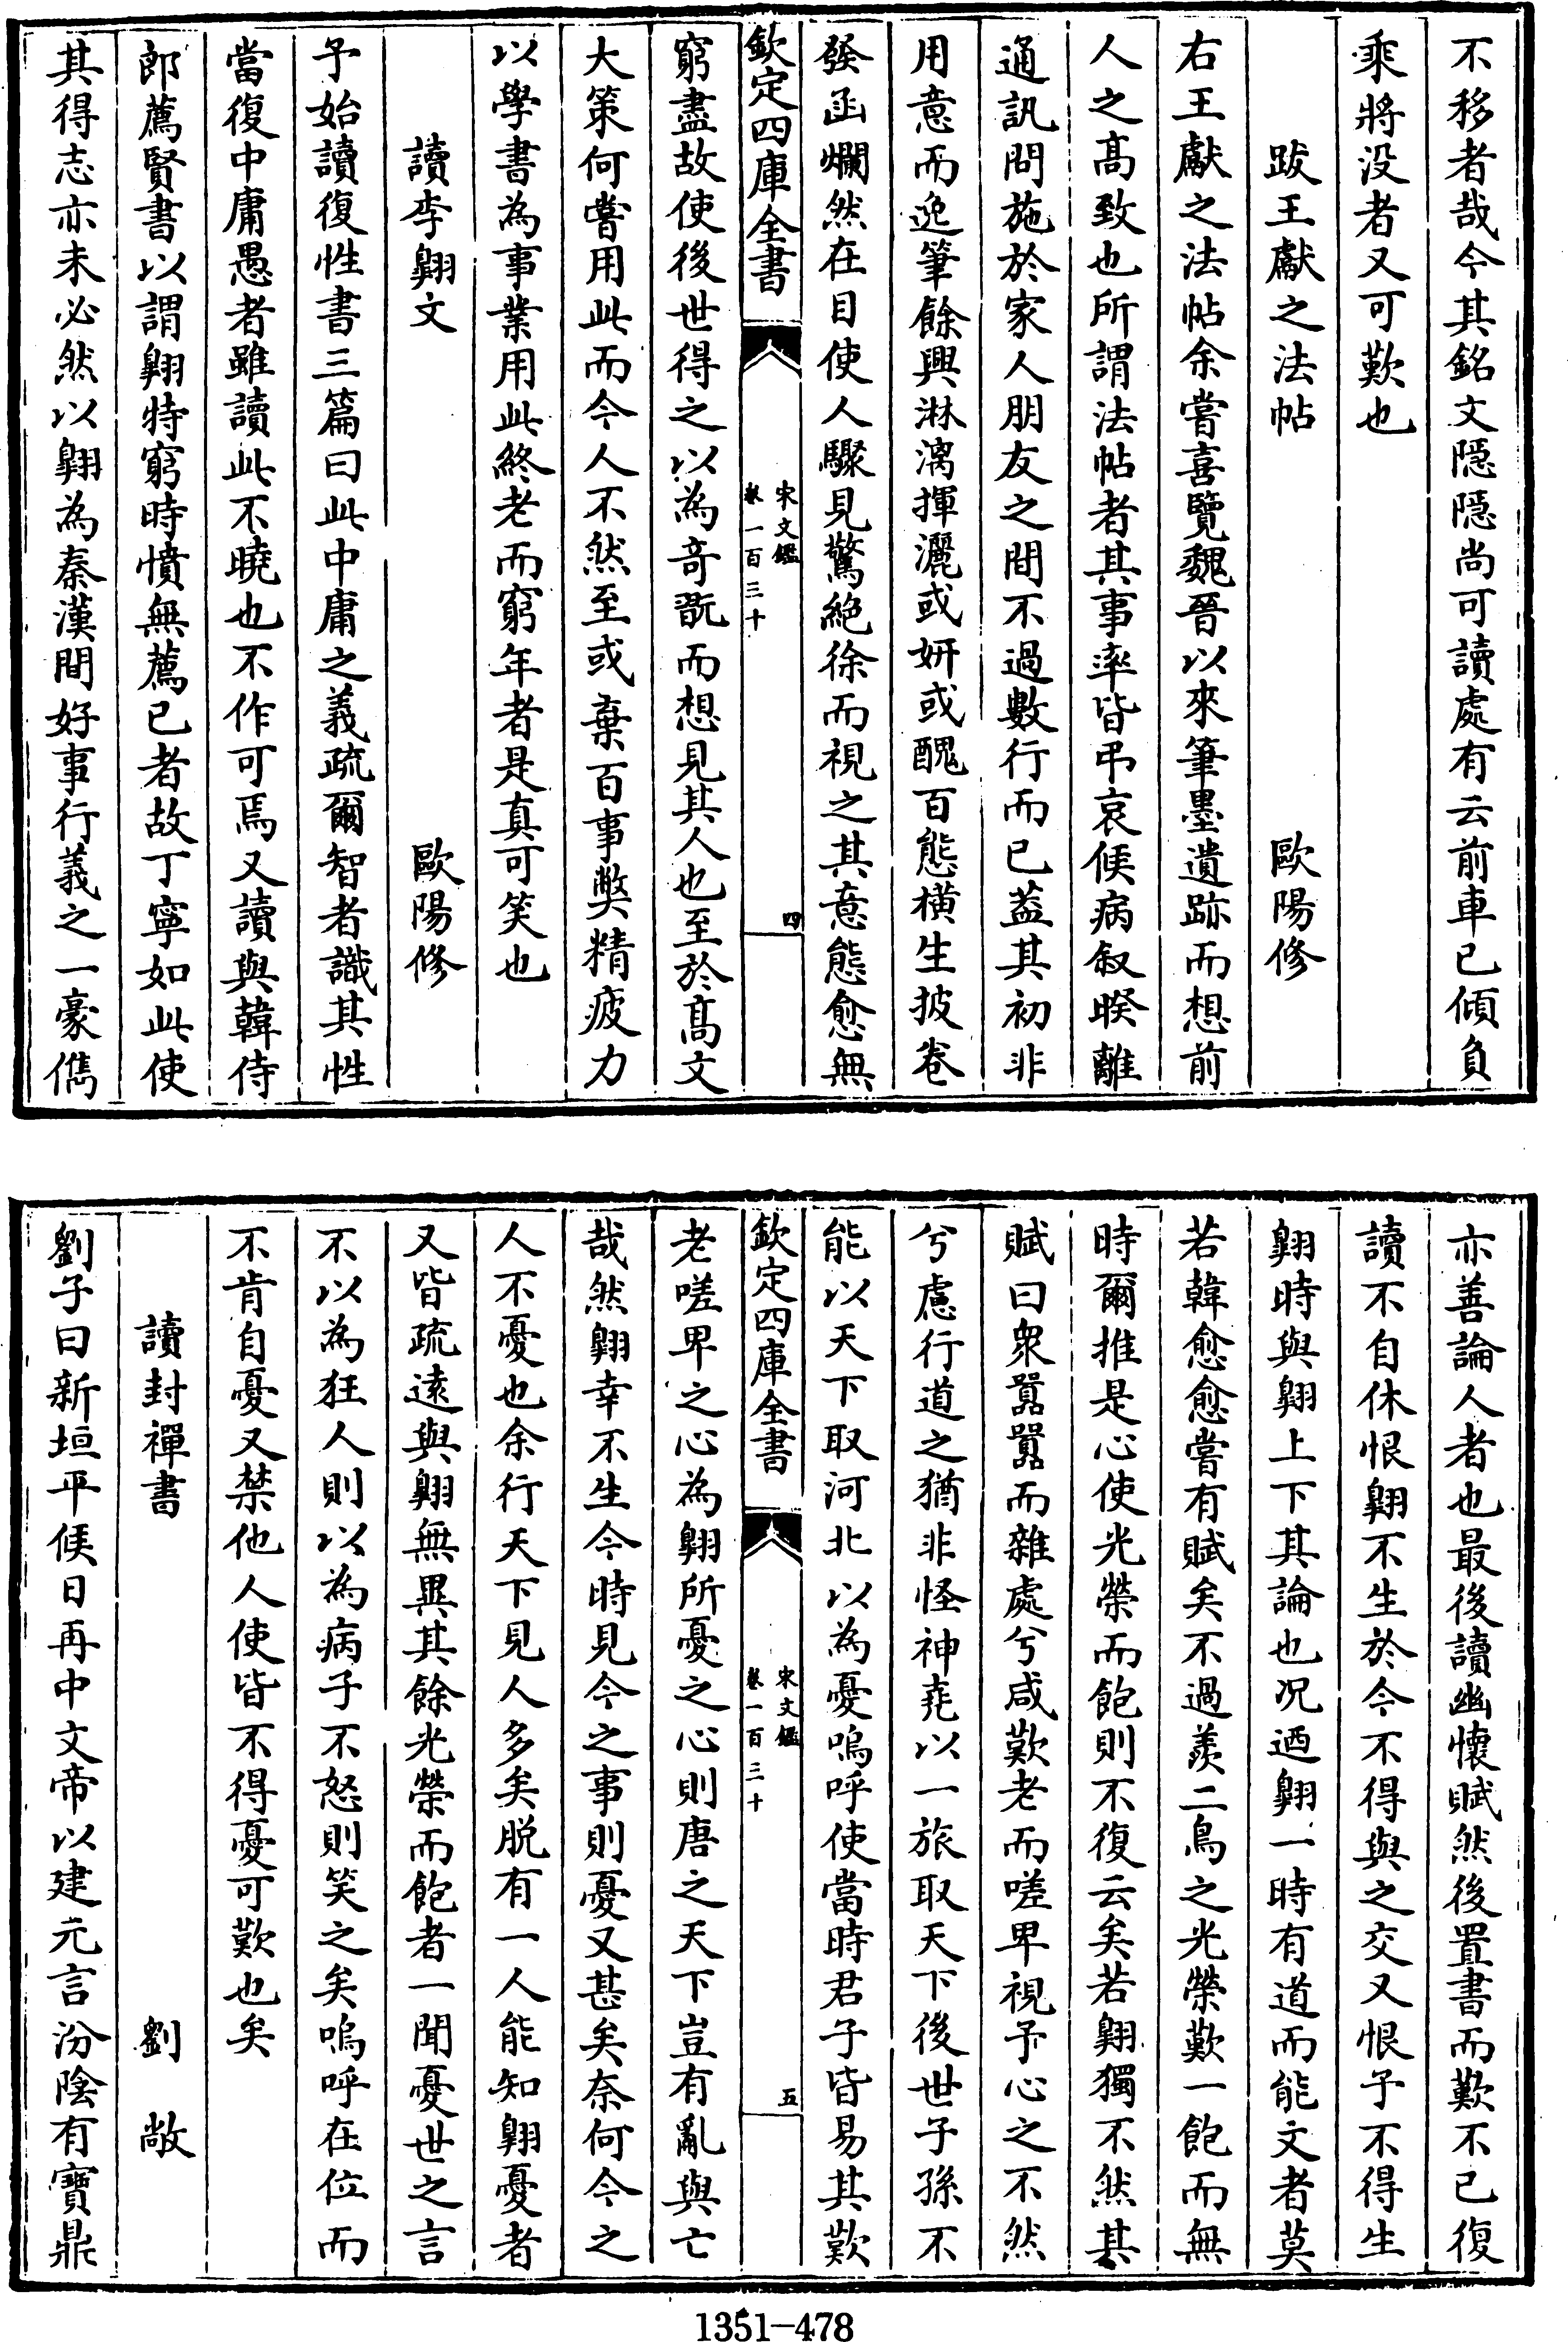 不移者哉今其銘文隠隠尚可讀處有云前車已傾負
乘將没者又可歎也
跋王獻之法帖 歐陽修
右王獻之法帖余嘗喜覽魏晉以來筆墨遺跡而想前
人之髙致也所謂法帖者其事率皆弔哀候病叙暌離
通訊問施於家人朋友之間不過數行而已葢其初非
用意而逸筆餘興淋漓揮灑或妍或醜百態横生披卷
發函爛然在目使人驟見驚絶徐而視之其意態愈無
欽定四庫全書 宋文鑑 卷一百三十 四
窮盡故使後世得之以為竒翫而想見其人也至於髙文
大策何嘗用此而今人不然至或棄百事弊精疲力
以學書為事業用此終老而窮年者是真可笑也
讀李翺文 歐陽修
予始讀復性書三篇曰此中庸之義疏爾智者識其性
當復中庸愚者雖讀此不曉也不作可焉又讀與韓侍
郎薦賢書以謂翺特窮時憤無薦已者故丁寧如此使
其得志亦未必然以翺為秦漢間好事行義之一豪儁
亦善論人者也最後讀幽懷賦然後置書而歎不已復
讀不自休恨翺不生於今不得與之交又恨予不得生
翺時與翺上下其論也况迺翺一時有道而能文者莫
若韓愈愈嘗有賦矣不過羨二鳥之光榮歎一飽而無
時爾推是心使光榮而飽則不復云矣若翺獨不然其
賦曰衆囂囂而雜處兮咸歎老而嗟卑視予心之不然
兮慮行道之猶非怪神堯以一旅取天下後世子孫不
能以天下取河北以為憂嗚呼使當時君子皆易其歎
欽定四庫全書 宋文鑑 卷一百三十 五
老嗟卑之心為翺所憂之心則唐之天下豈有亂與亡
哉然翺幸不生今時見今之事則憂又甚矣奈何今之
人不憂也余行天下見人多矣脱有一人能知翺憂者
又皆疏逺與翺無異其餘光榮而飽者一聞憂世之言
不以為狂人則以為病子不怒則笑之矣嗚呼在位而
不肯自憂又禁他人使皆不得憂可歎也矣
讀封禪書 劉敞
劉子曰新垣平候日再中文帝以建元言汾隂有寶鼎
1351-478